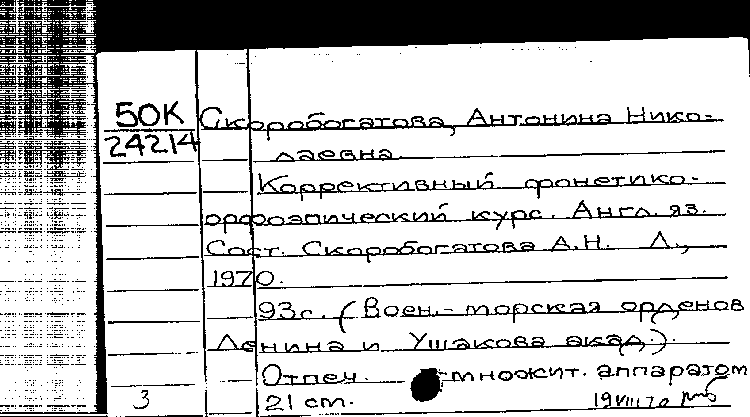 50К Скоробогатова, Антонина Нико-
24214 лаевна.
Коррективный фонетико-
орфоэпический курс. Англ. яз.
Сост. Скоробогатова А.Н. Л.,
1970.
93с. (Воен.-морская орденов
Ленина и Ушакова акад.).
Отпеч. множит. аппаратом
3 21 cm. 19VIII70